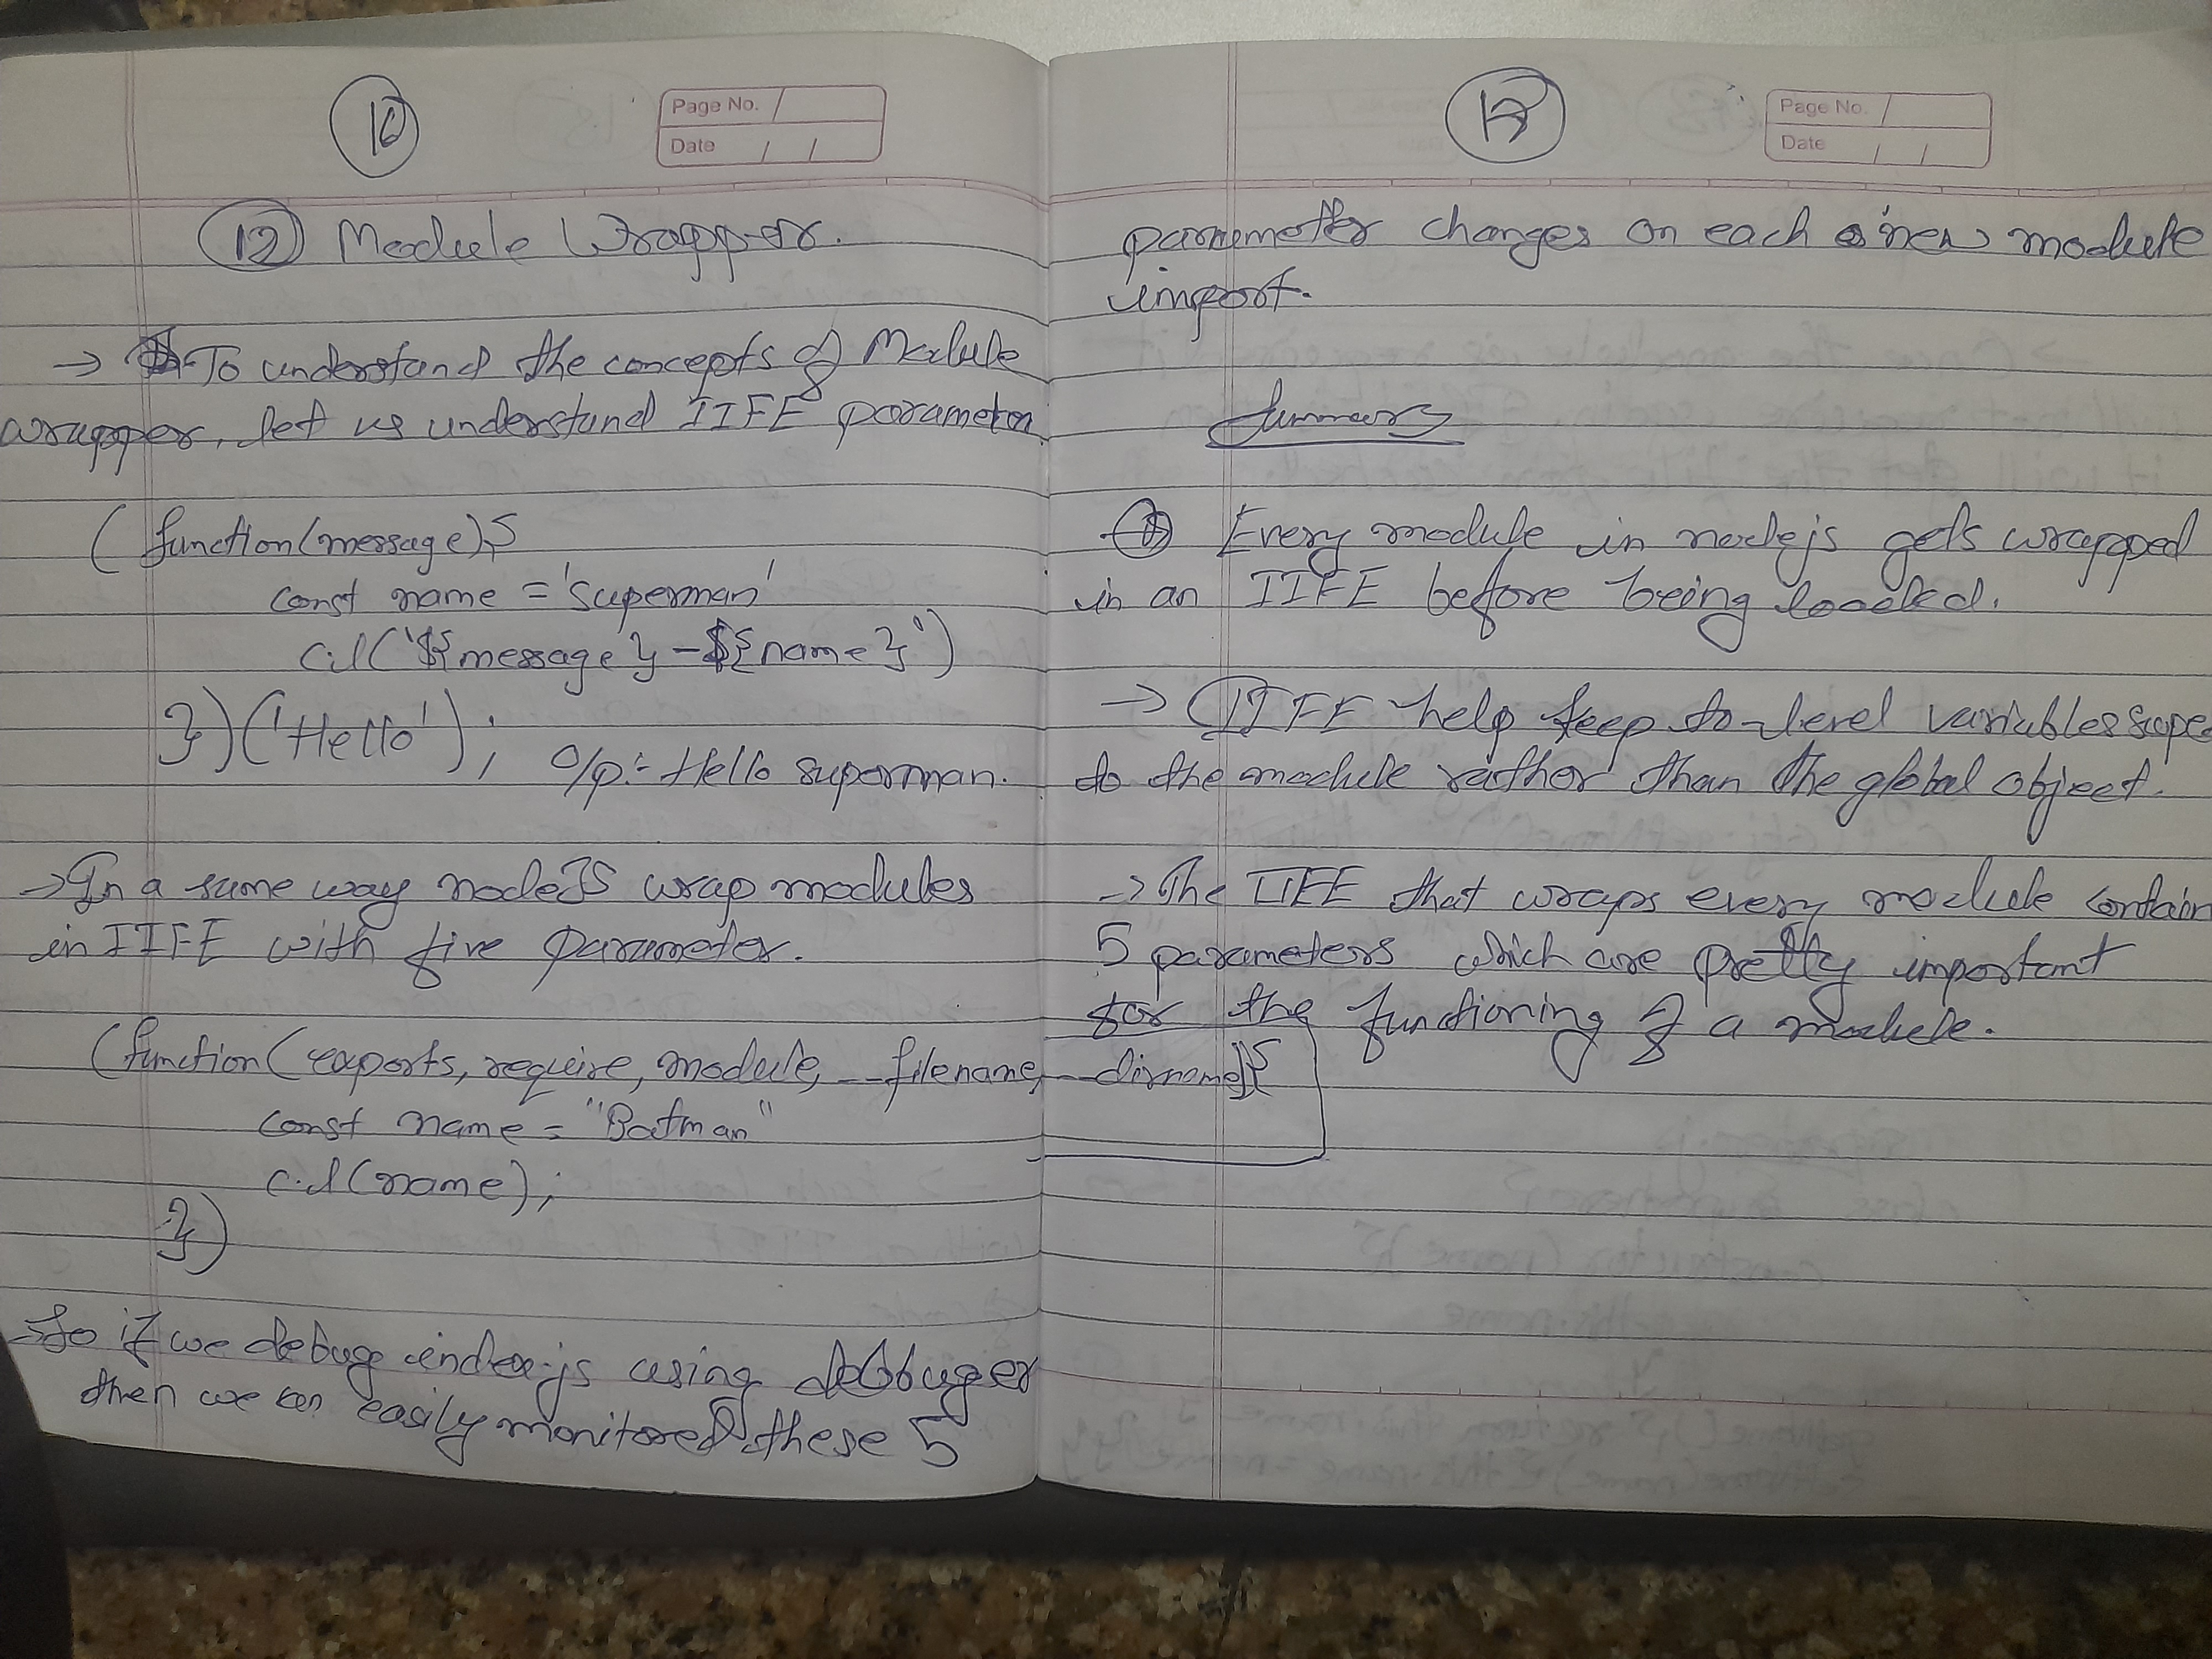 16
Page No.
Date / /
12 Module Wrapper.
→ To understand the concepts of Module
wrapper, let us understand IIFE parameter
(function(message){
const name = 'superman'
c.l(`${message} - ${name}`)
})('Hello');
o/p:- Hello superman.
→ In a same way nodeJS wrap modules
in IIFE with five parameter.
(function(exports, require, module, __filename, __dirname){
const name = "Batman"
c.l(name);
})
→ So if we debug index.js using debbuger
then we can easily monitored these 5
17
Page No.
Date / /
parameter changes on each new module
import.
Summary
→ Every module in nodejs gets wrapped
in an IIFE before being loaded.
→ IIFE help keep to-level variables scope
to the module rather than the global object.
→ The IIFE that wraps every module contain
5 parameters which are pretty important
for the functioning of a module.